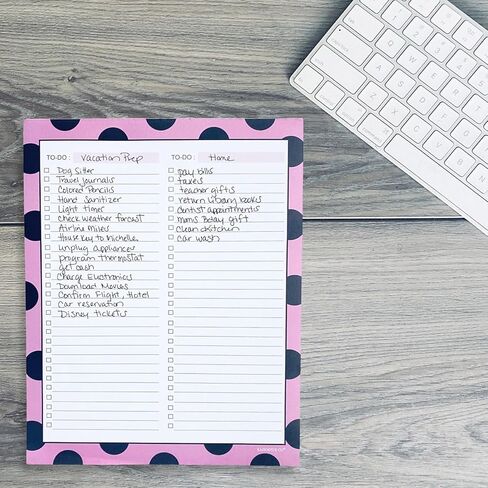 TO-DO: Vacation Prep
Dog Sitter
Travel Journals
Colored Pencils
Hand Sanitizer
Light Timer
check weather forcast
Airline miles
House key to Michelle
unplug appliances
program thermostat
get cash
Charge Electronics
Download Movies
Confirm Flight, Hotel
Car reservation
Disney tickets
TO-DO: Home
pay bills
taxes
teacher gifts
return library books
dentist appointments
moms Bday gift
clean kitchen
car wash